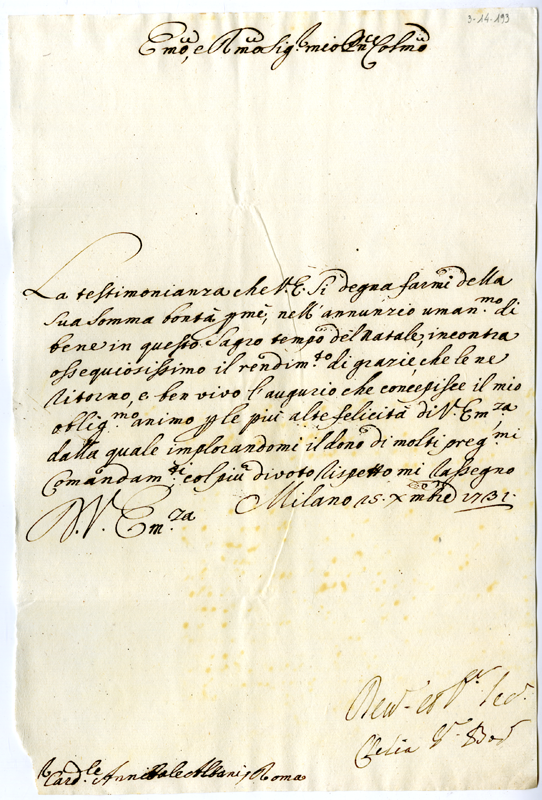 3-14-193
Emo, e Rmo Sigr mio Pne Colmo
La testimonianza che V.E. si degna farmi della
sua somma bontà p me, nell' annunzio uman.mo di
bene in questo Sagro tempo del Natale, incontra
ossequiosissimo il rendim.to di grazie, che le ne
ritorno, e ben vivo l'augurio che concepisce il mio
oblig.mo animo p le più alte felicità di V. Em.za,
dalla quale implorandomi il dono di molti preg.mi
Comandam.ti col più divoto rispetto mi rassegno
D. V. Em.za Milano 15. Xmbre 1731.
Clelia
Card.le Annibale Albani, Roma